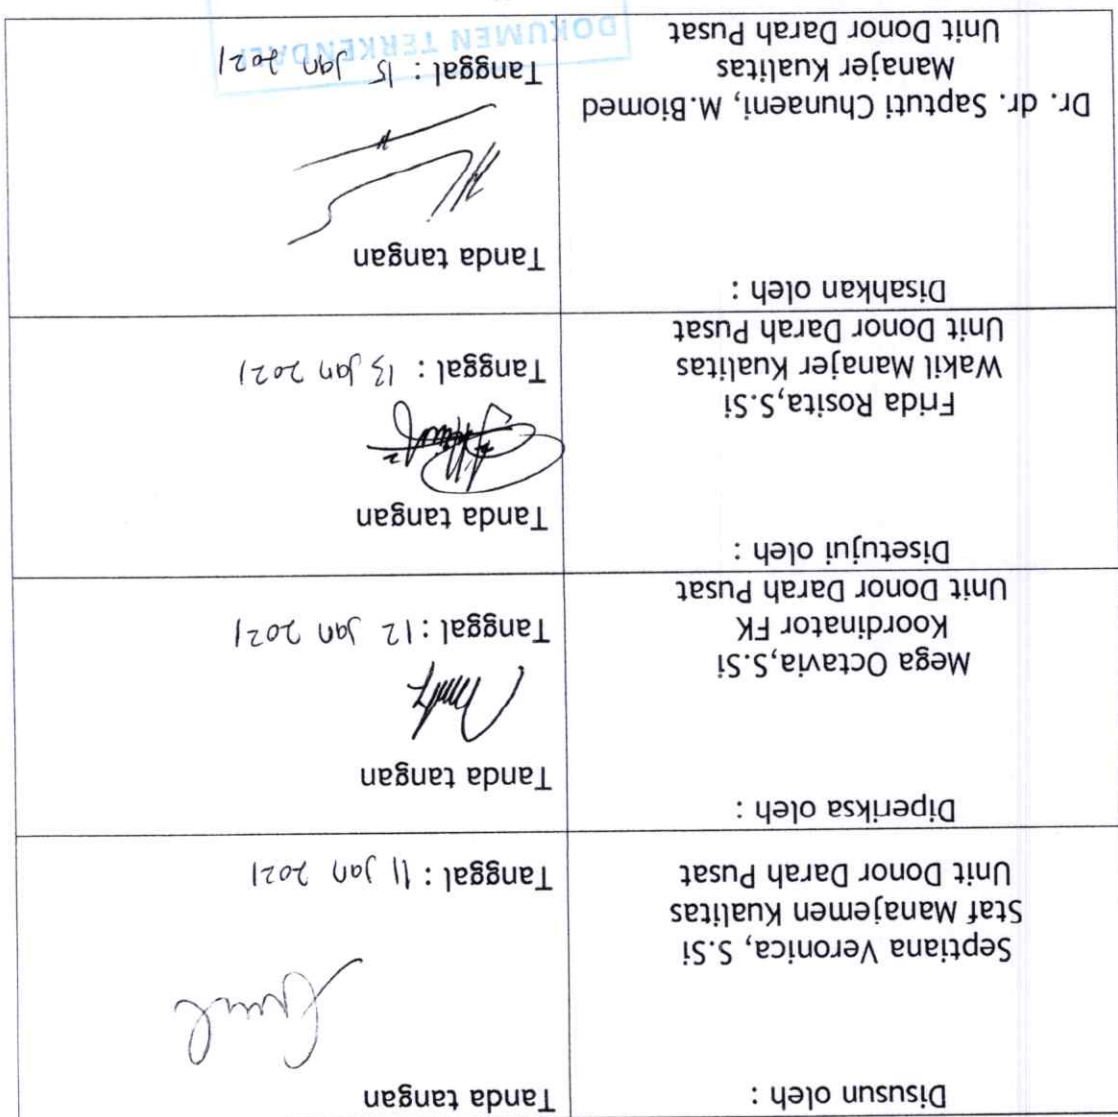 Disusun oleh :
Septiana Veronica, S.Si
Staf Manajemen Kualitas
Unit Donor Darah Pusat
Tanda tangan
Tanggal : 11 Jan 2021
Diperiksa oleh :
Mega Octavia,S.Si
Koordinator FK
Unit Donor Darah Pusat
Tanda tangan
Tanggal : 12 Jan 2021
Disetujui oleh :
Frida Rosita,S.Si
Wakil Manajer Kualitas
Unit Donor Darah Pusat
Tanda tangan
Tanggal : 13 Jan 2021
Disahkan oleh :
Dr. dr. Saptuti Chunaeni, M.Biomed
Manajer Kualitas
Unit Donor Darah Pusat
Tanda tangan
Tanggal : 15 Jan 2021
DOKUMEN